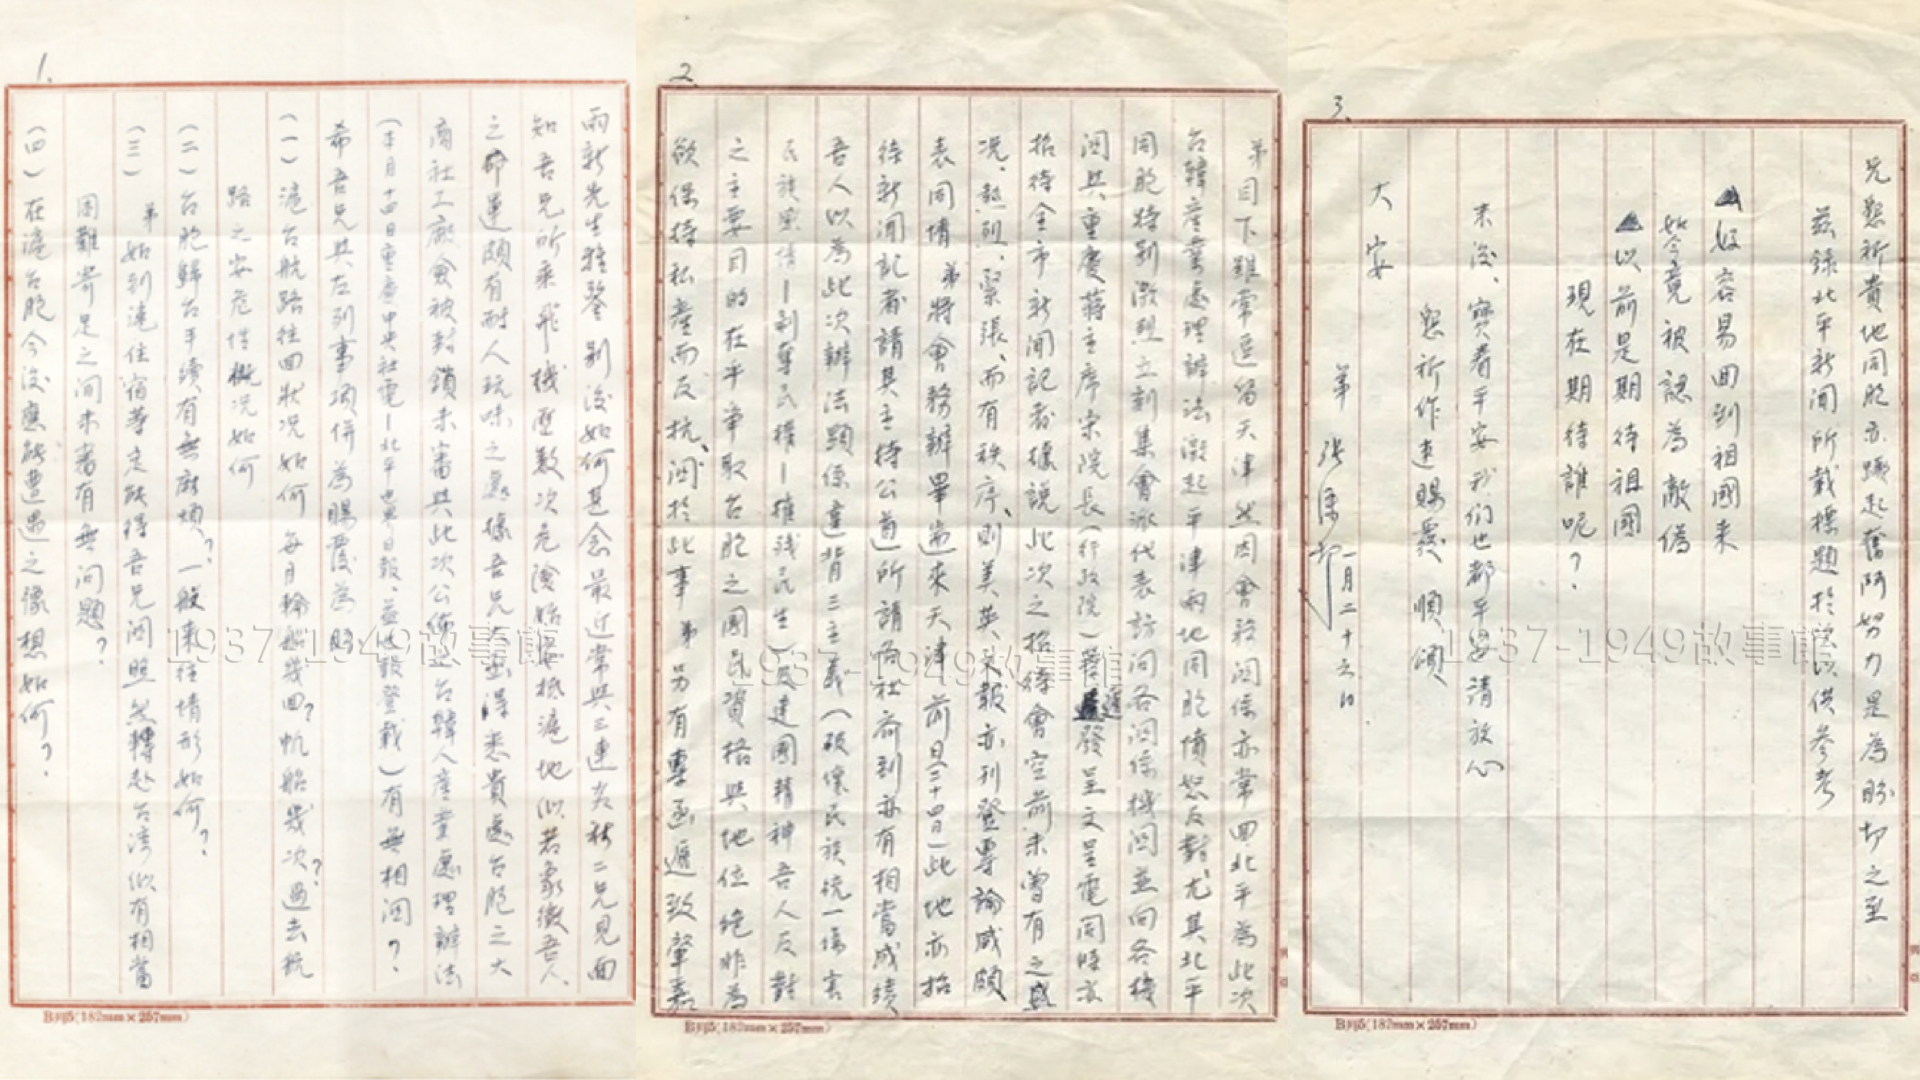 1.
雨新先生雅鑒 別後如何甚念最近常與三連
二兄見面
知吾兄所乘飛機歷數次危險始安抵滬地似若象徵吾人
之命運頗有耐人玩味之
據吾兄
悉貴處台胞之大
商社工廠會被封鎖未審與此次公佈之台韓人產業處理辦法
(本月十四日重慶中央社電—北平世界日報、益世報登載)有無相関?
希吾兄與左列事項併為賜覆為盼
(一)滬台航路往回狀況如何 每月輪船幾回?帆船幾次?過去航
路之安危性概况如何
(二)台胞歸台手續有無麻煩?一般來往情形如何?
(三)弟如到滬住宿等定能得吾兄関照 然轉赴台湾似有相當
困難寄足之間未審有無问題?
(四)在滬台胞今後應能遭遇之豫想如何?
B列5(182mm×257mm)
2
弟目下雖常逗留天津然因會務関係亦常回北平為此次
台韓產業處理辦法激起平津兩地同胞憤怒反對尤其北平
同胞特別激烈立刻集會派代表訪问各関係機関並向各機
関與重慶蔣主席宋院長(行政院)
發呈文呈電同時亦
招待全市新聞記者據說此次之招待會空前未曾有之盛
况、熱烈、緊張、而有秩序、則美、英文報亦刊登專論咸頗
表同情 弟將會務辦畢
來天津前日(二十四日)此地亦招
待新聞記者請其主持公道所請各社
到亦有相當成績
吾人以為此次辦法顯係違背三主義(破壞民族統一傷害
民族感情—剝奪民權—摧残民生)及建國精神吾人反對
之主要目的在乎爭取台胞之國民資格與地位絶非為
欲保持私產而反抗、関於此事 弟另有專函遞致肇嘉
B列5(182mm×257mm)
3.
兄懇祈貴地同胞亦蹶起奮鬥努力是為盼切之至
茲錄北平新聞所載標題於後以供參考
▲好容易回到祖國來
如今竟被認為敵偽
▲以前是期待祖國
現在期待誰呢?
末後、寶眷平安我们也都平安請放心
懇祈作速賜覆 順頌
大安
弟 張
一月二十六日
B列5(182mm×257mm)
1937-1949故事館
1937-1949故事館
1937-1949故事館